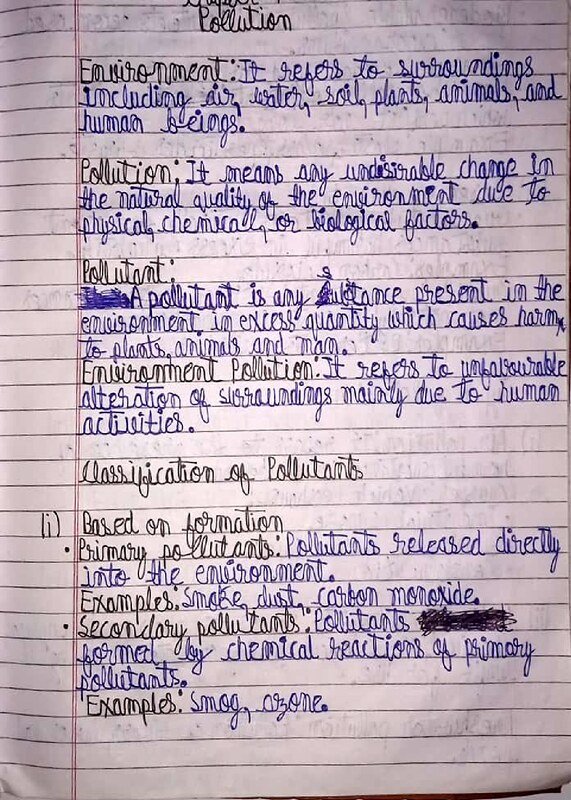 Pollution
Environment: It refers to surroundings
including air, water, soil, plants, animals, and
human beings.
Pollution: It means any undisirable change in
the natural quality of the environment due to
physical, chemicall, or biological factors.
Pollutant:
A pollutant is any substance present in the
environment in excess quantity which causes harm
to plants, animals and man.
Environment Pollution: It refers to unfavourable
alteration of surroundings mainly due to human
activities.
Classification of Pollutants
(i) Based on formation
• Primary pollutants: Pollutants released directly
into the environment.
Examples: Smoke, dust, carbon monoxide.
• Secondary pollutants: Pollutants
formed by chemical reactions of primary
pollutants.
Examples: Smog, ozone.